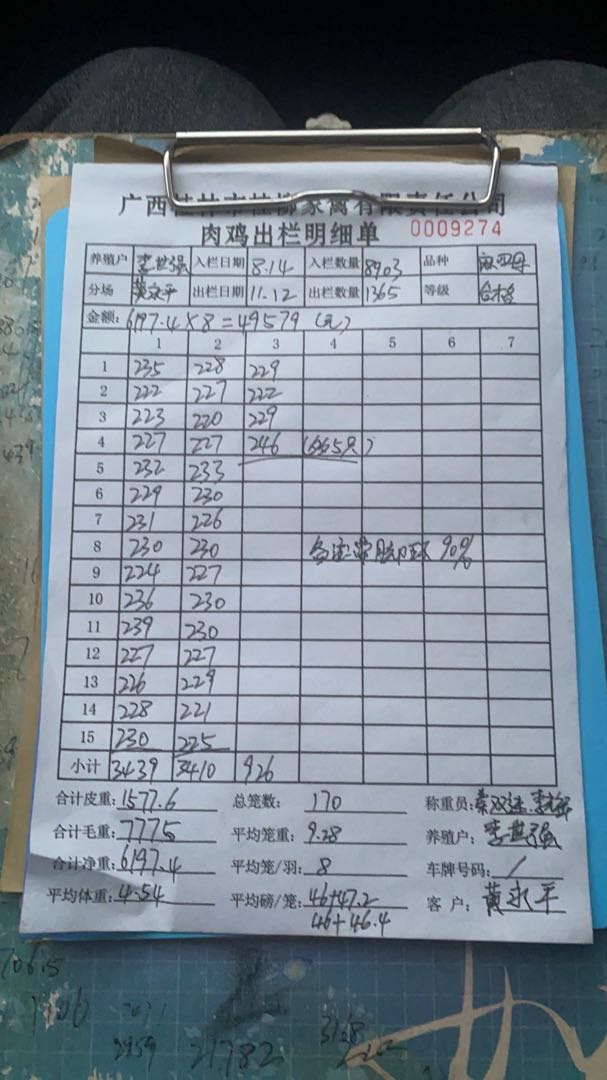 广西桂林市桂柳家禽有限责任公司
肉鸡出栏明细单 0009274
养殖户 李世强 入栏日期 8.14 入栏数量 8903 品种
分场 黄永平 出栏日期 11.12 出栏数量 1365 等级 合格
金额: 6197.4×8=49579(元)
1 2 3 4 5 6 7
1 235 228 229
2 222 227 222
3 223 220 229
4 227 227 246
5 232 233
6 229 230
7 231 226
8 230 230 备注: 90%
9 224 227
10 236 230
11 239 230
12 227 227
13 226 229
14 228 221
15 230 225
小计 3439 3410 926
合计皮重: 1577.6 总笼数: 170 称重员:
合计毛重: 7775 平均笼重: 9.28 养殖户: 李世强
合计净重: 6197.4 平均笼/羽: 8 车牌号码: /
平均体重: 4.54 平均磅/笼: 46+47.2 客户: 黄永平
46+46.4
21782